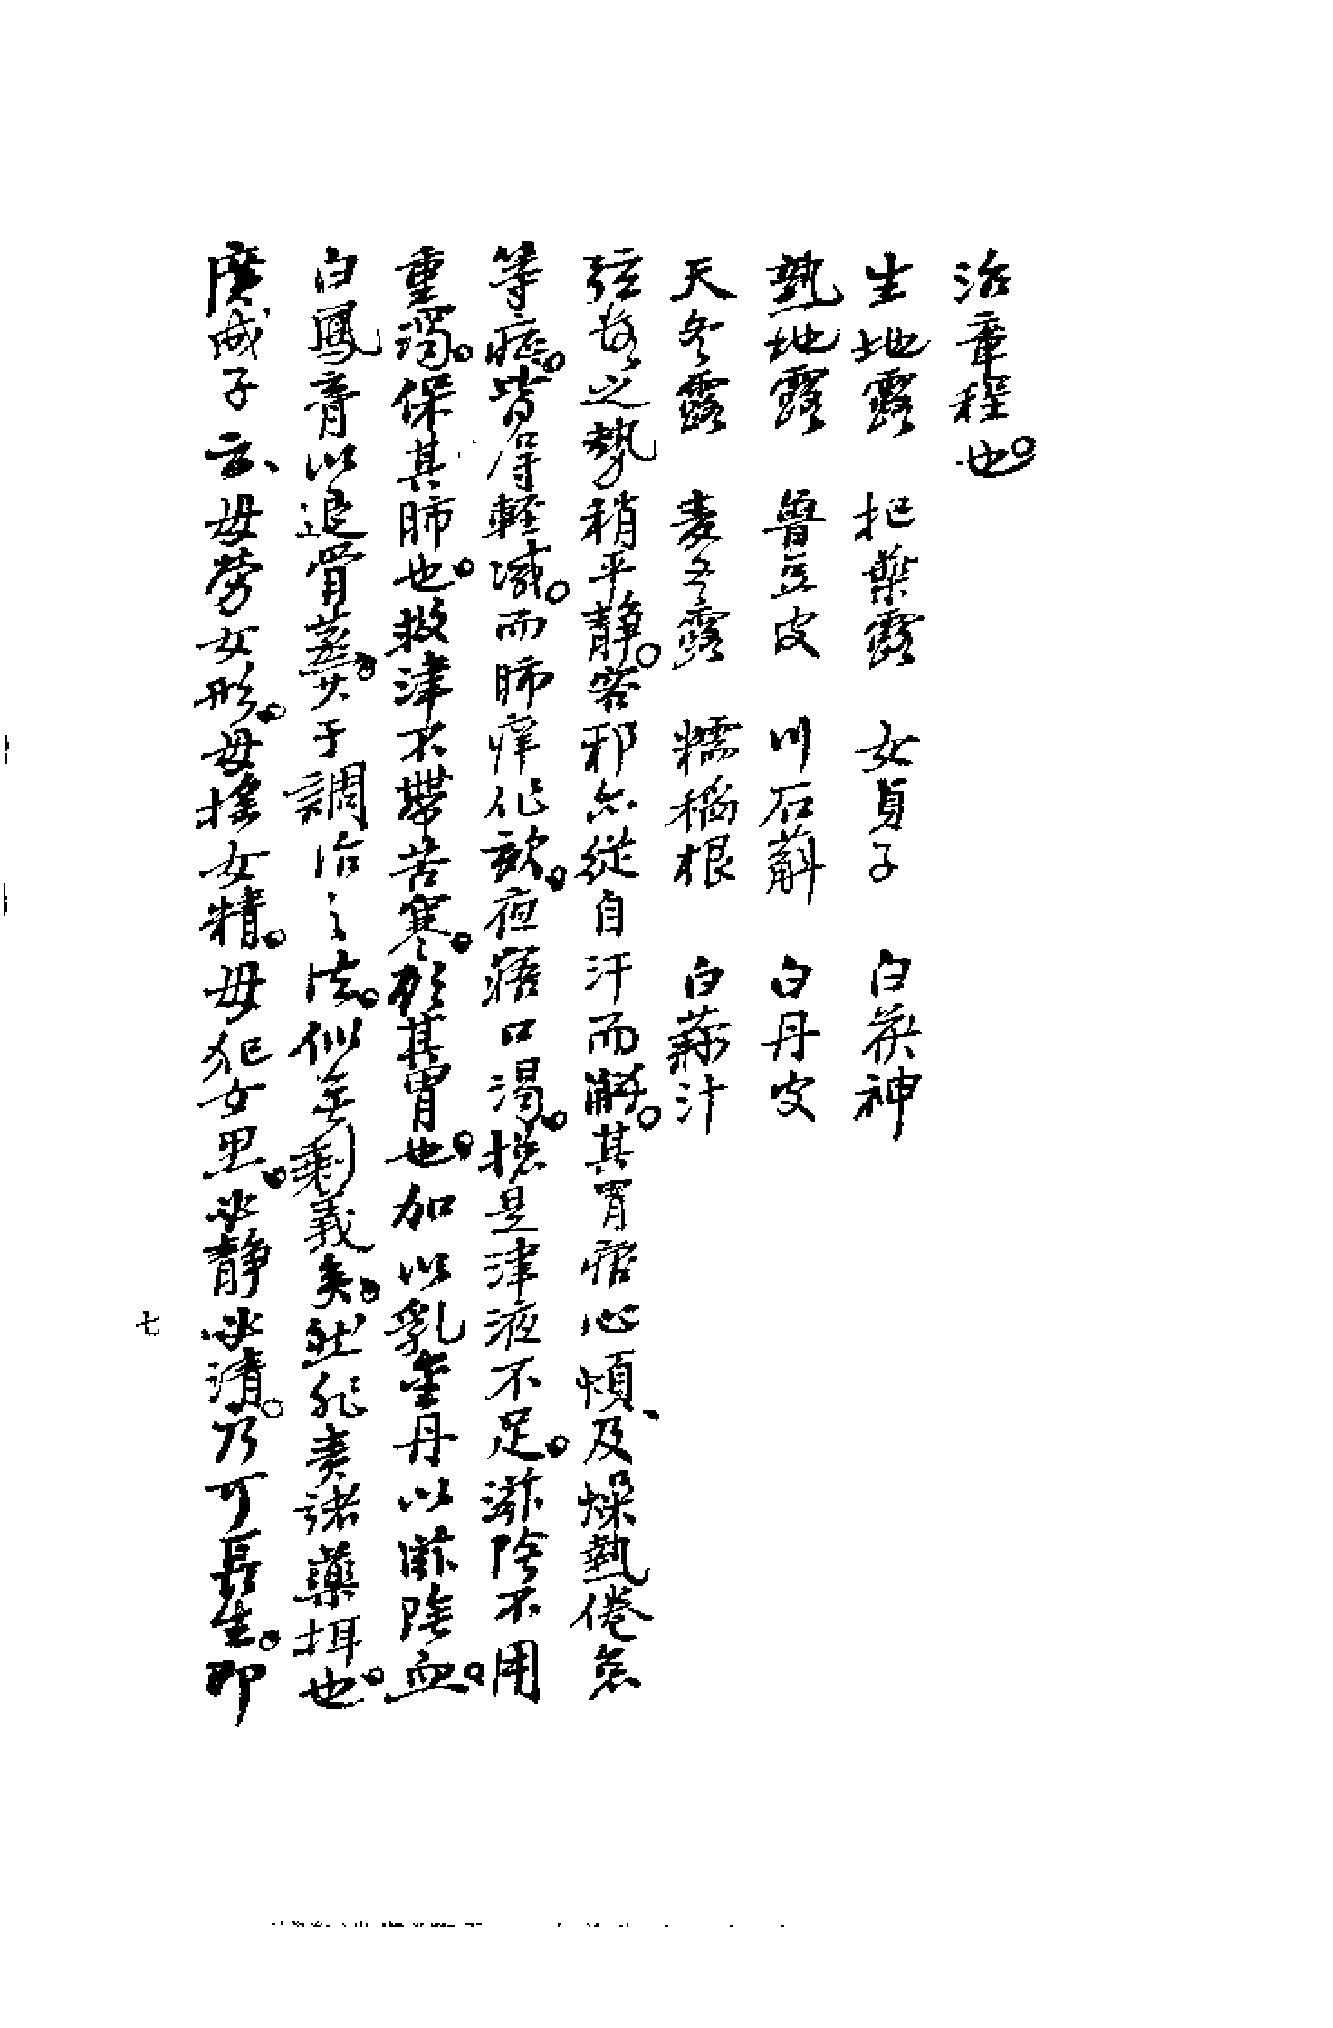 治章程也。
生地露　杞葉露　女貞子　白茯神
熟地露　魯豆皮　川石斛　白丹皮
天冬露　麦冬露　糯稻根　白蔴汁
弦数之勢稍平静。客邪亦從自汗而解。其胃痞心煩、及燥熱倦怠
等症。皆得輕減。而肺痒作欬。夜寤口渴。揔是津液不足。滋陰不用
重濁。保其肺也。救津不帶苦寒。顧其胃也。加以乳金丹以滋陰血。
白鳳膏以追骨蒸。其于調治之法。似無剩義矣。然非責諸藥揖也。
廣成子云、毋勞女形。毋摇女精。毋犯女思。必静必清。乃可長生。即
七